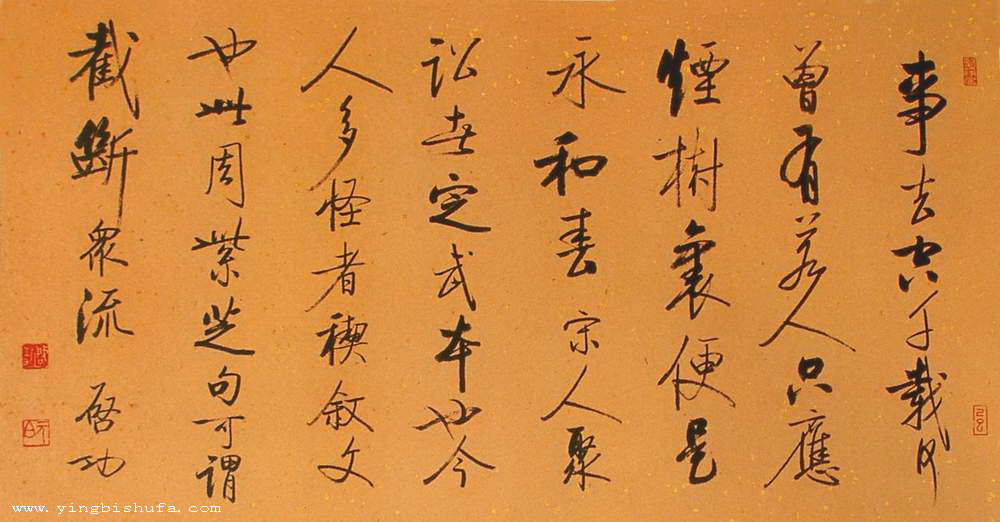 事去空千載何
曾有若人只應
煙樹裏便是
永和春宋人聚
訟者定武本也今
人多怪者禊敘文
也此周紫芝句可謂
截斷衆流 啟功
www.yingbishufa.com